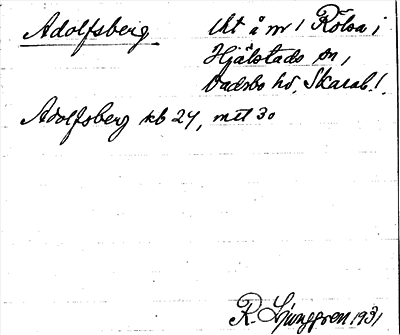 Adolfsberg
Lht å nr 1 Rölsa i
Hjälstads sn,
Vadsbo hd, Skarab. l.
Adolfsberg kb 24, mtl 30
R. Ljunggren 1931